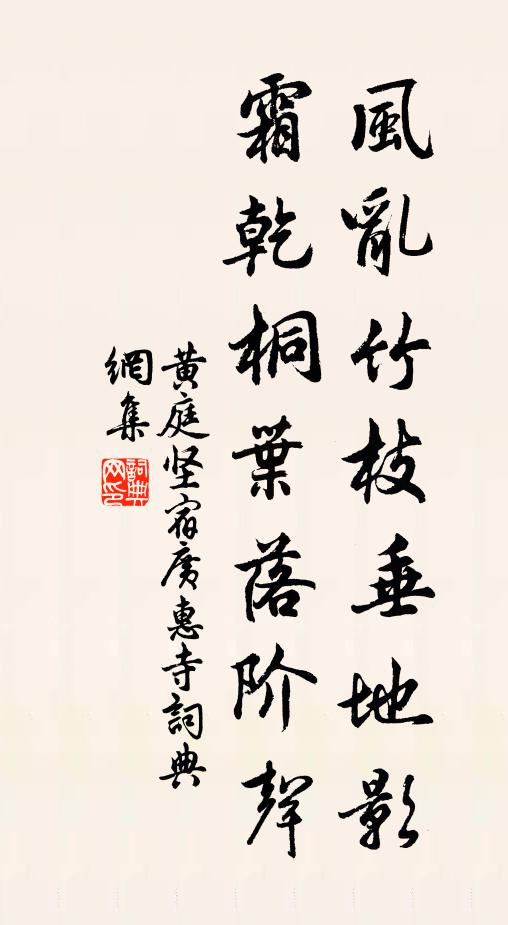 風亂竹枝垂地影
霜乾桐葉落阶聲
黄庭坚宿廣惠寺詞典
網集
詞典網印